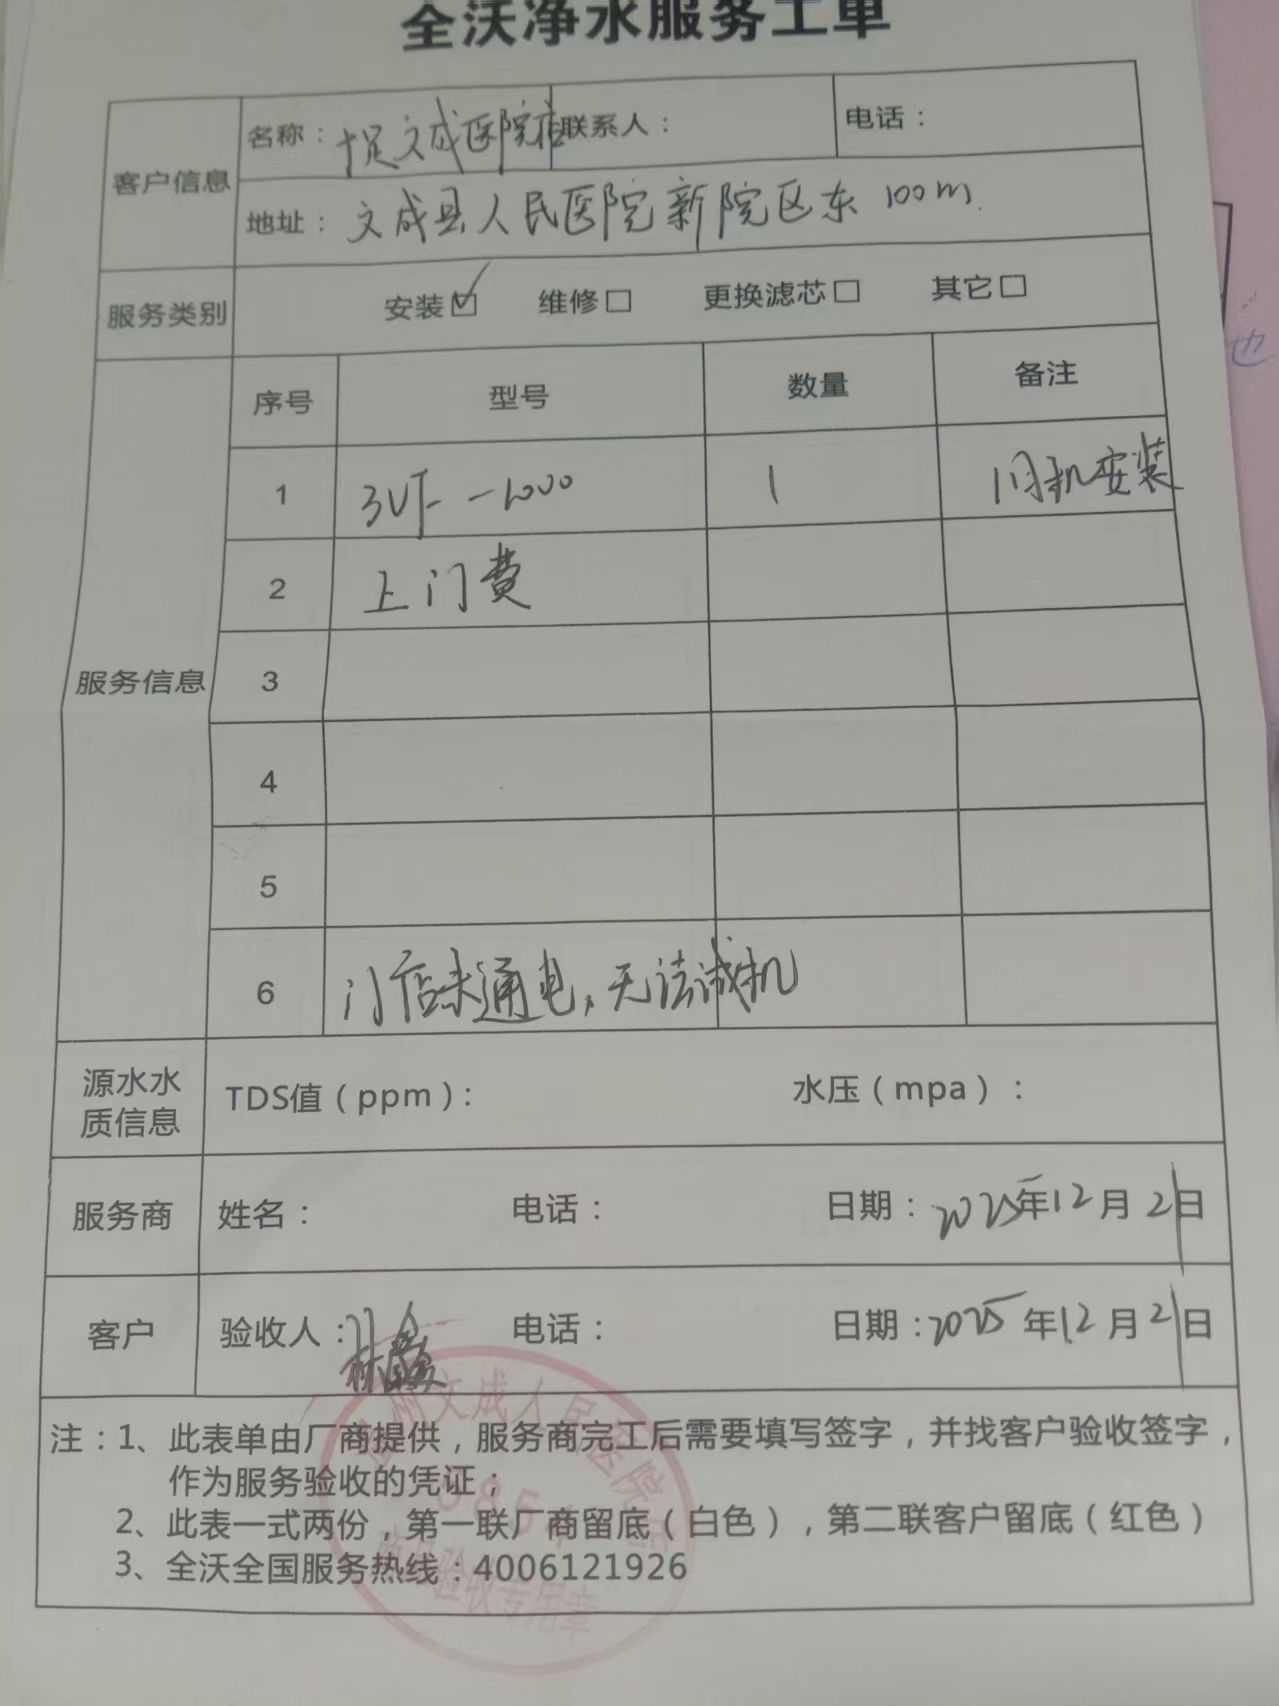 全沃净水服务工单
客户信息 名称：十足文成医院店 联系人： 电话：
地址：文成县人民医院新院区东100m
服务类别 安装☑ 维修□ 更换滤芯□ 其它□
服务信息 序号 型号 数量 备注
1 3UF-1000 1 旧机安装
2 上门费
3
4
5
6 门店未通电，无法试机
源水水质信息 TDS值（ppm）： 水压（mpa）：
服务商 姓名： 电话： 日期：2025年12月21日
客户 验收人：林 电话： 日期：2025年12月21日
注：1、此表单由厂商提供，服务商完工后需要填写签字，并找客户验收签字，
作为服务验收的凭证；
2、此表一式两份，第一联厂商留底（白色），第二联客户留底（红色）
3、全沃全国服务热线：4006121926
州文成人民医院店
验收专用章